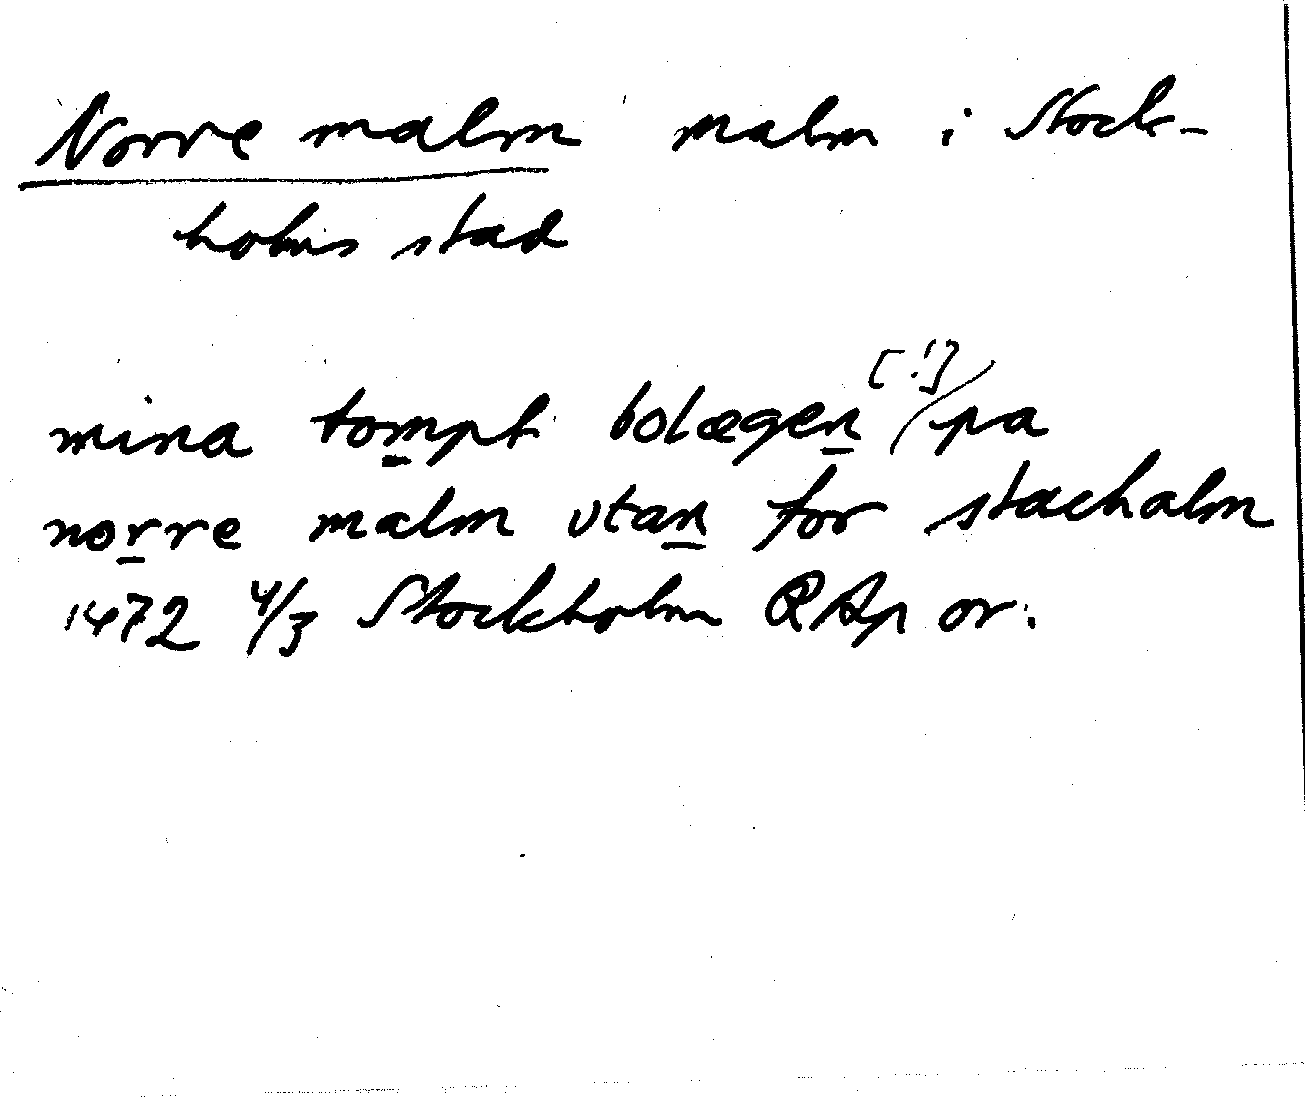 Norre malm malm i Stock-
holms stad
mina tompt bolægen [!] / pa
norre malm vtan for stacholm
1472 4/3 Stockholm RAp or.